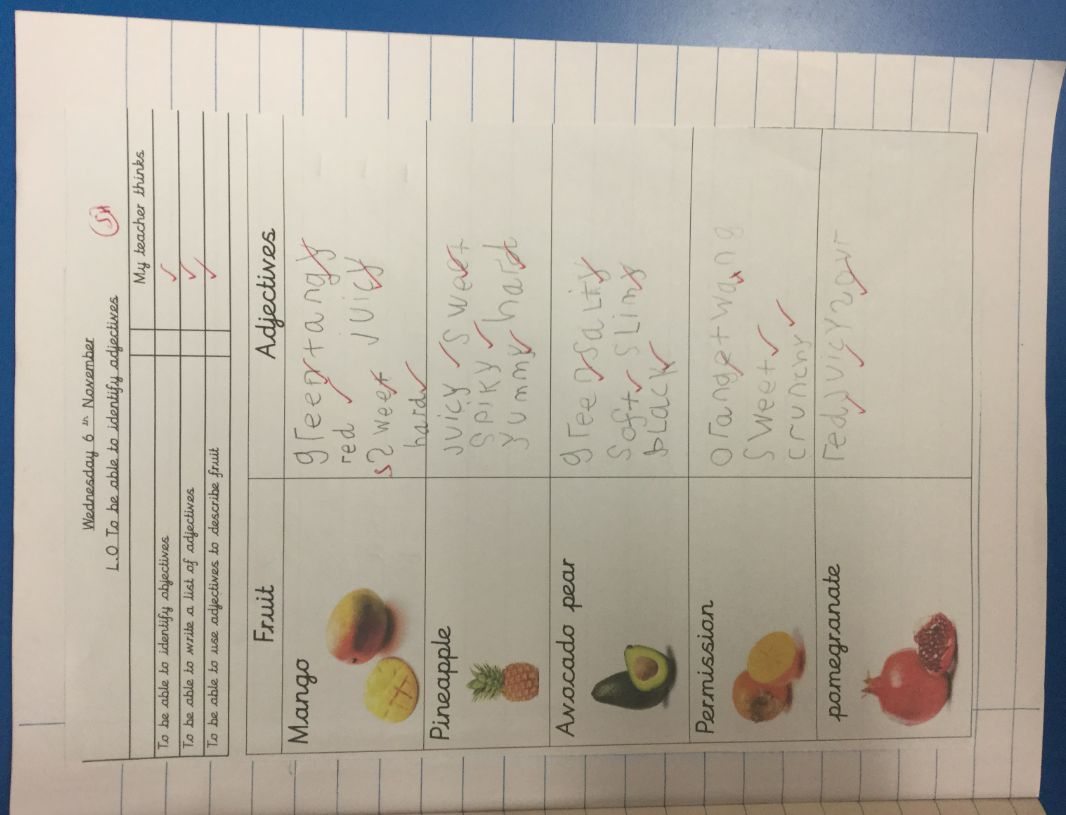 Wednesday 6 th November
L.O To be able to identify adjectives
SH
My teacher thinks
To be able to identify abjectives
To be able to write a list of adjectives
To be able to use adjectives to describe fruit
Fruit Adjectives
Mango
green tangy
red juicy
s2weet
hard
Pineapple
juicy sweet
spiky hard
yummy
Avacado pear
green salty
soft slimy
black
Permission
orange twang
sweet
crunchy
pomegranate
red juicy 2our